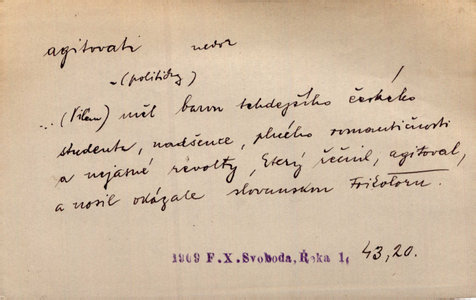 agitovati nedok
~ (politicky)
... (Vilém) měl barvu tehdejšího českého
studenta, nadšence, plného romantičnosti
a nejasné revolty, který řečnil, agitoval,
a nosil okázale slovanskou trikoloru.
1909 F.X.Svoboda, Řeka 1, 43,20.